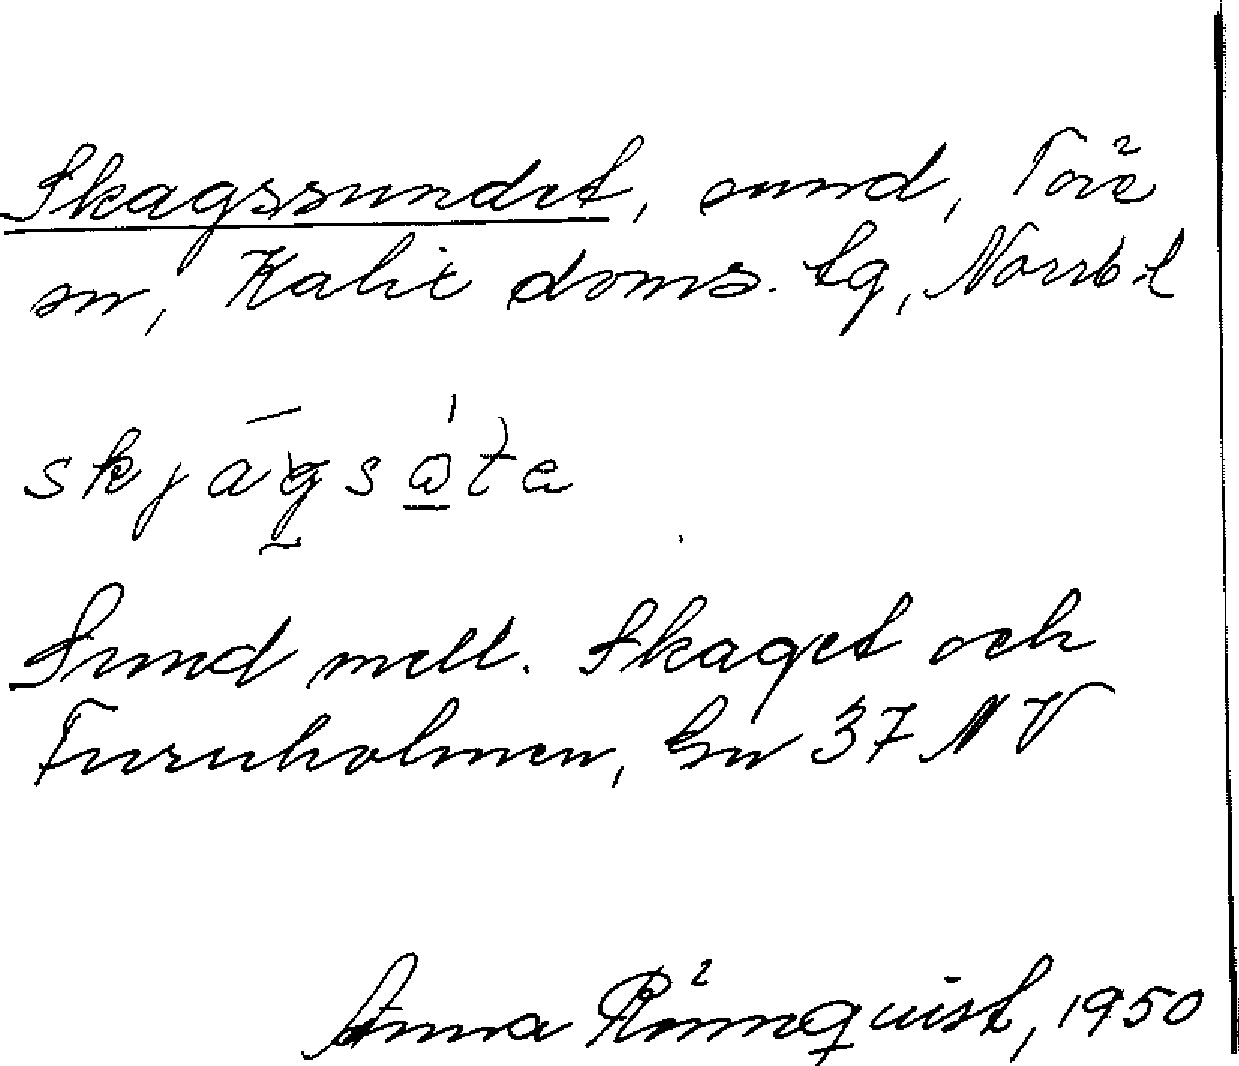 Skagssundet, sund, Töre
sn, Kalix doms. lg, Norrb. l
skjagsåte
Sund mell. Skaget och
Furuholmen, Gsn 37 NV
Anna Rönnquist, 1950